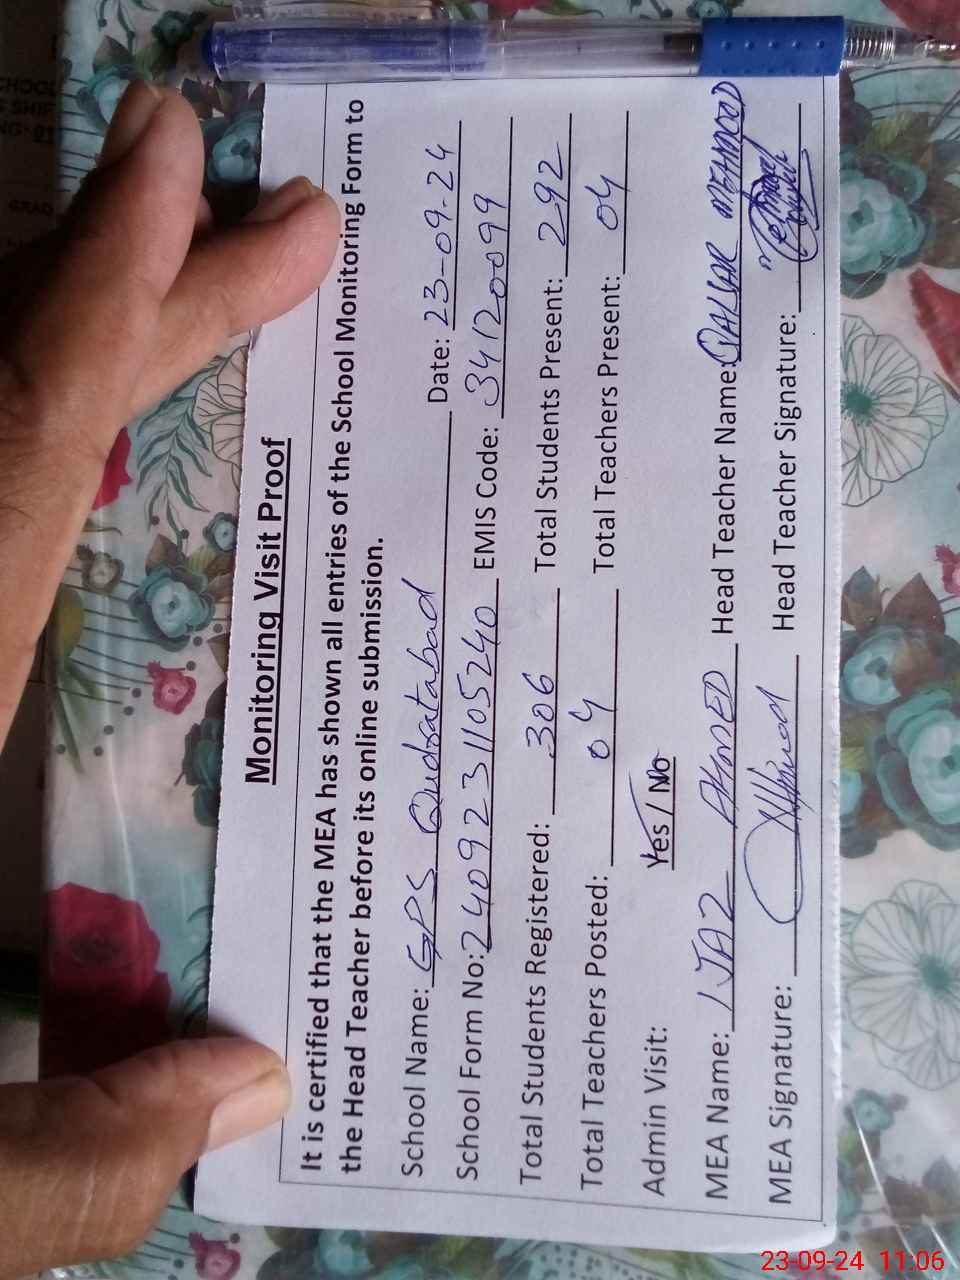 Monitoring Visit Proof
It is certified that the MEA has shown all entries of the School Monitoring Form to
the Head Teacher before its online submission.
School Name: GPS Qudratabad Date: 23-09-24
School Form No: 2409231105240 EMIS Code: 34120099
Total Students Registered: 306 Total Students Present: 292
Total Teachers Posted: 04 Total Teachers Present: 04
Admin Visit: Yes / No
MEA Name: IJAZ AHMED Head Teacher Name: QAISAR MEHMOOD
MEA Signature: Head Teacher Signature:
23-09-24 11:06